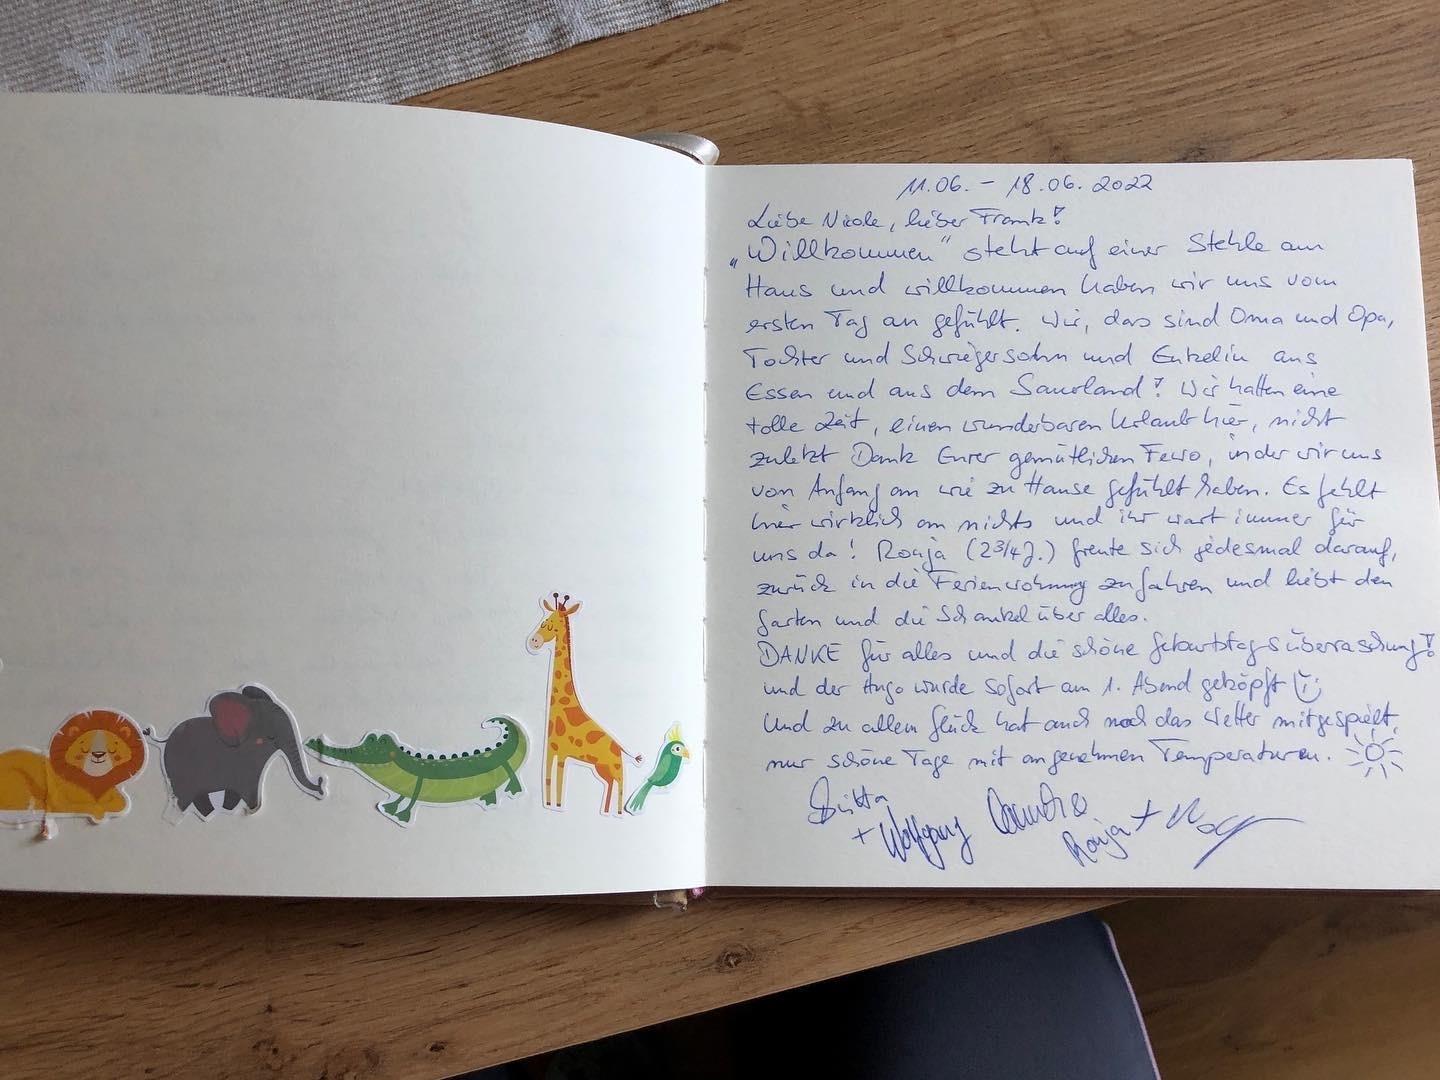 11.06. - 18.06. 2022
Liebe Nicole, lieber Frank!
„Willkommen" steht auf einer Stehle am
Haus und willkommen haben wir uns vom
ersten Tag an gefühlt. Wir, das sind Oma und Opa,
Tochter und Schwiegersohn und Enkelin aus
Essen und aus dem Sauerland! Wir hatten eine
tolle Zeit, einen wunderbaren Urlaub hier, nicht
zuletzt Dank Eurer gemütlichen Fewo, in der wir uns
von Anfang an wie zu Hause gefühlt haben. Es fehlt
hier wirklich an nichts und ihr wart immer für
uns da! Ronja (2 3/4 J.) freute sich jedesmal darauf,
zurück in die Ferienwohnung zu fahren und liebt den
Garten und die Schaukel über alles.
DANKE für alles und die schöne Geburtstagsüberraschung!
und der Hugo wurde sofort am 1. Abend geköpft
Und zu allem Glück hat auch noch das Wetter mitgespielt,
nur schöne Tage mit angenehmen Temperaturen.
Britta
+ Wolfgang
Ronja +